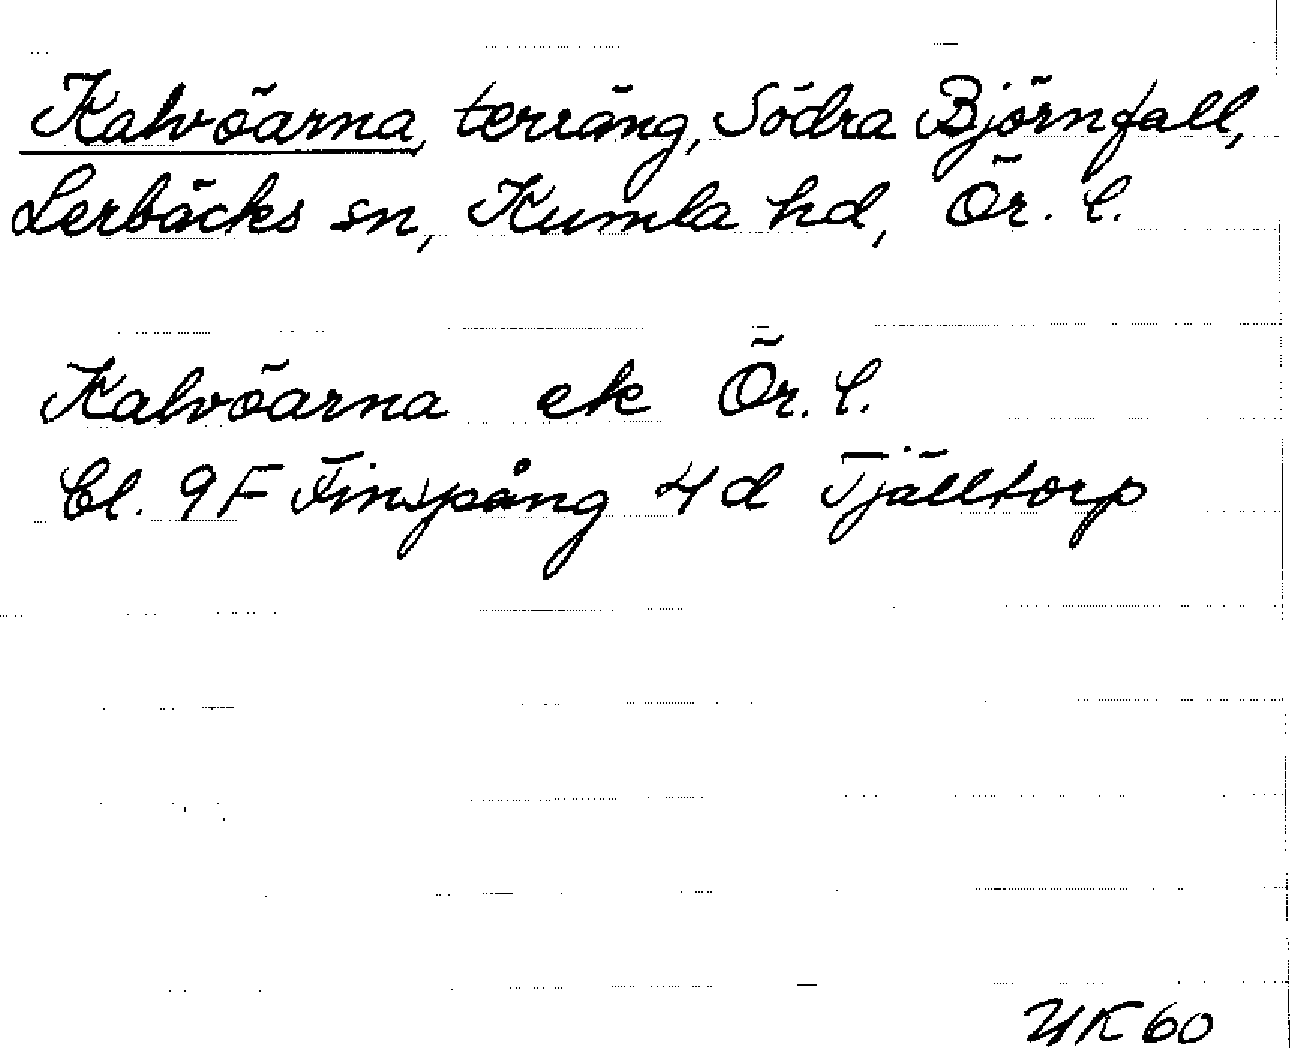 Kalvöarna, terräng, Södra Björnfall,
Lerbäcks sn, Kumla hd, Ör. l.
Kalvöarna ek Ör. l.
Bl. 9F Finspång 4 d Tjälltorp
YK 60